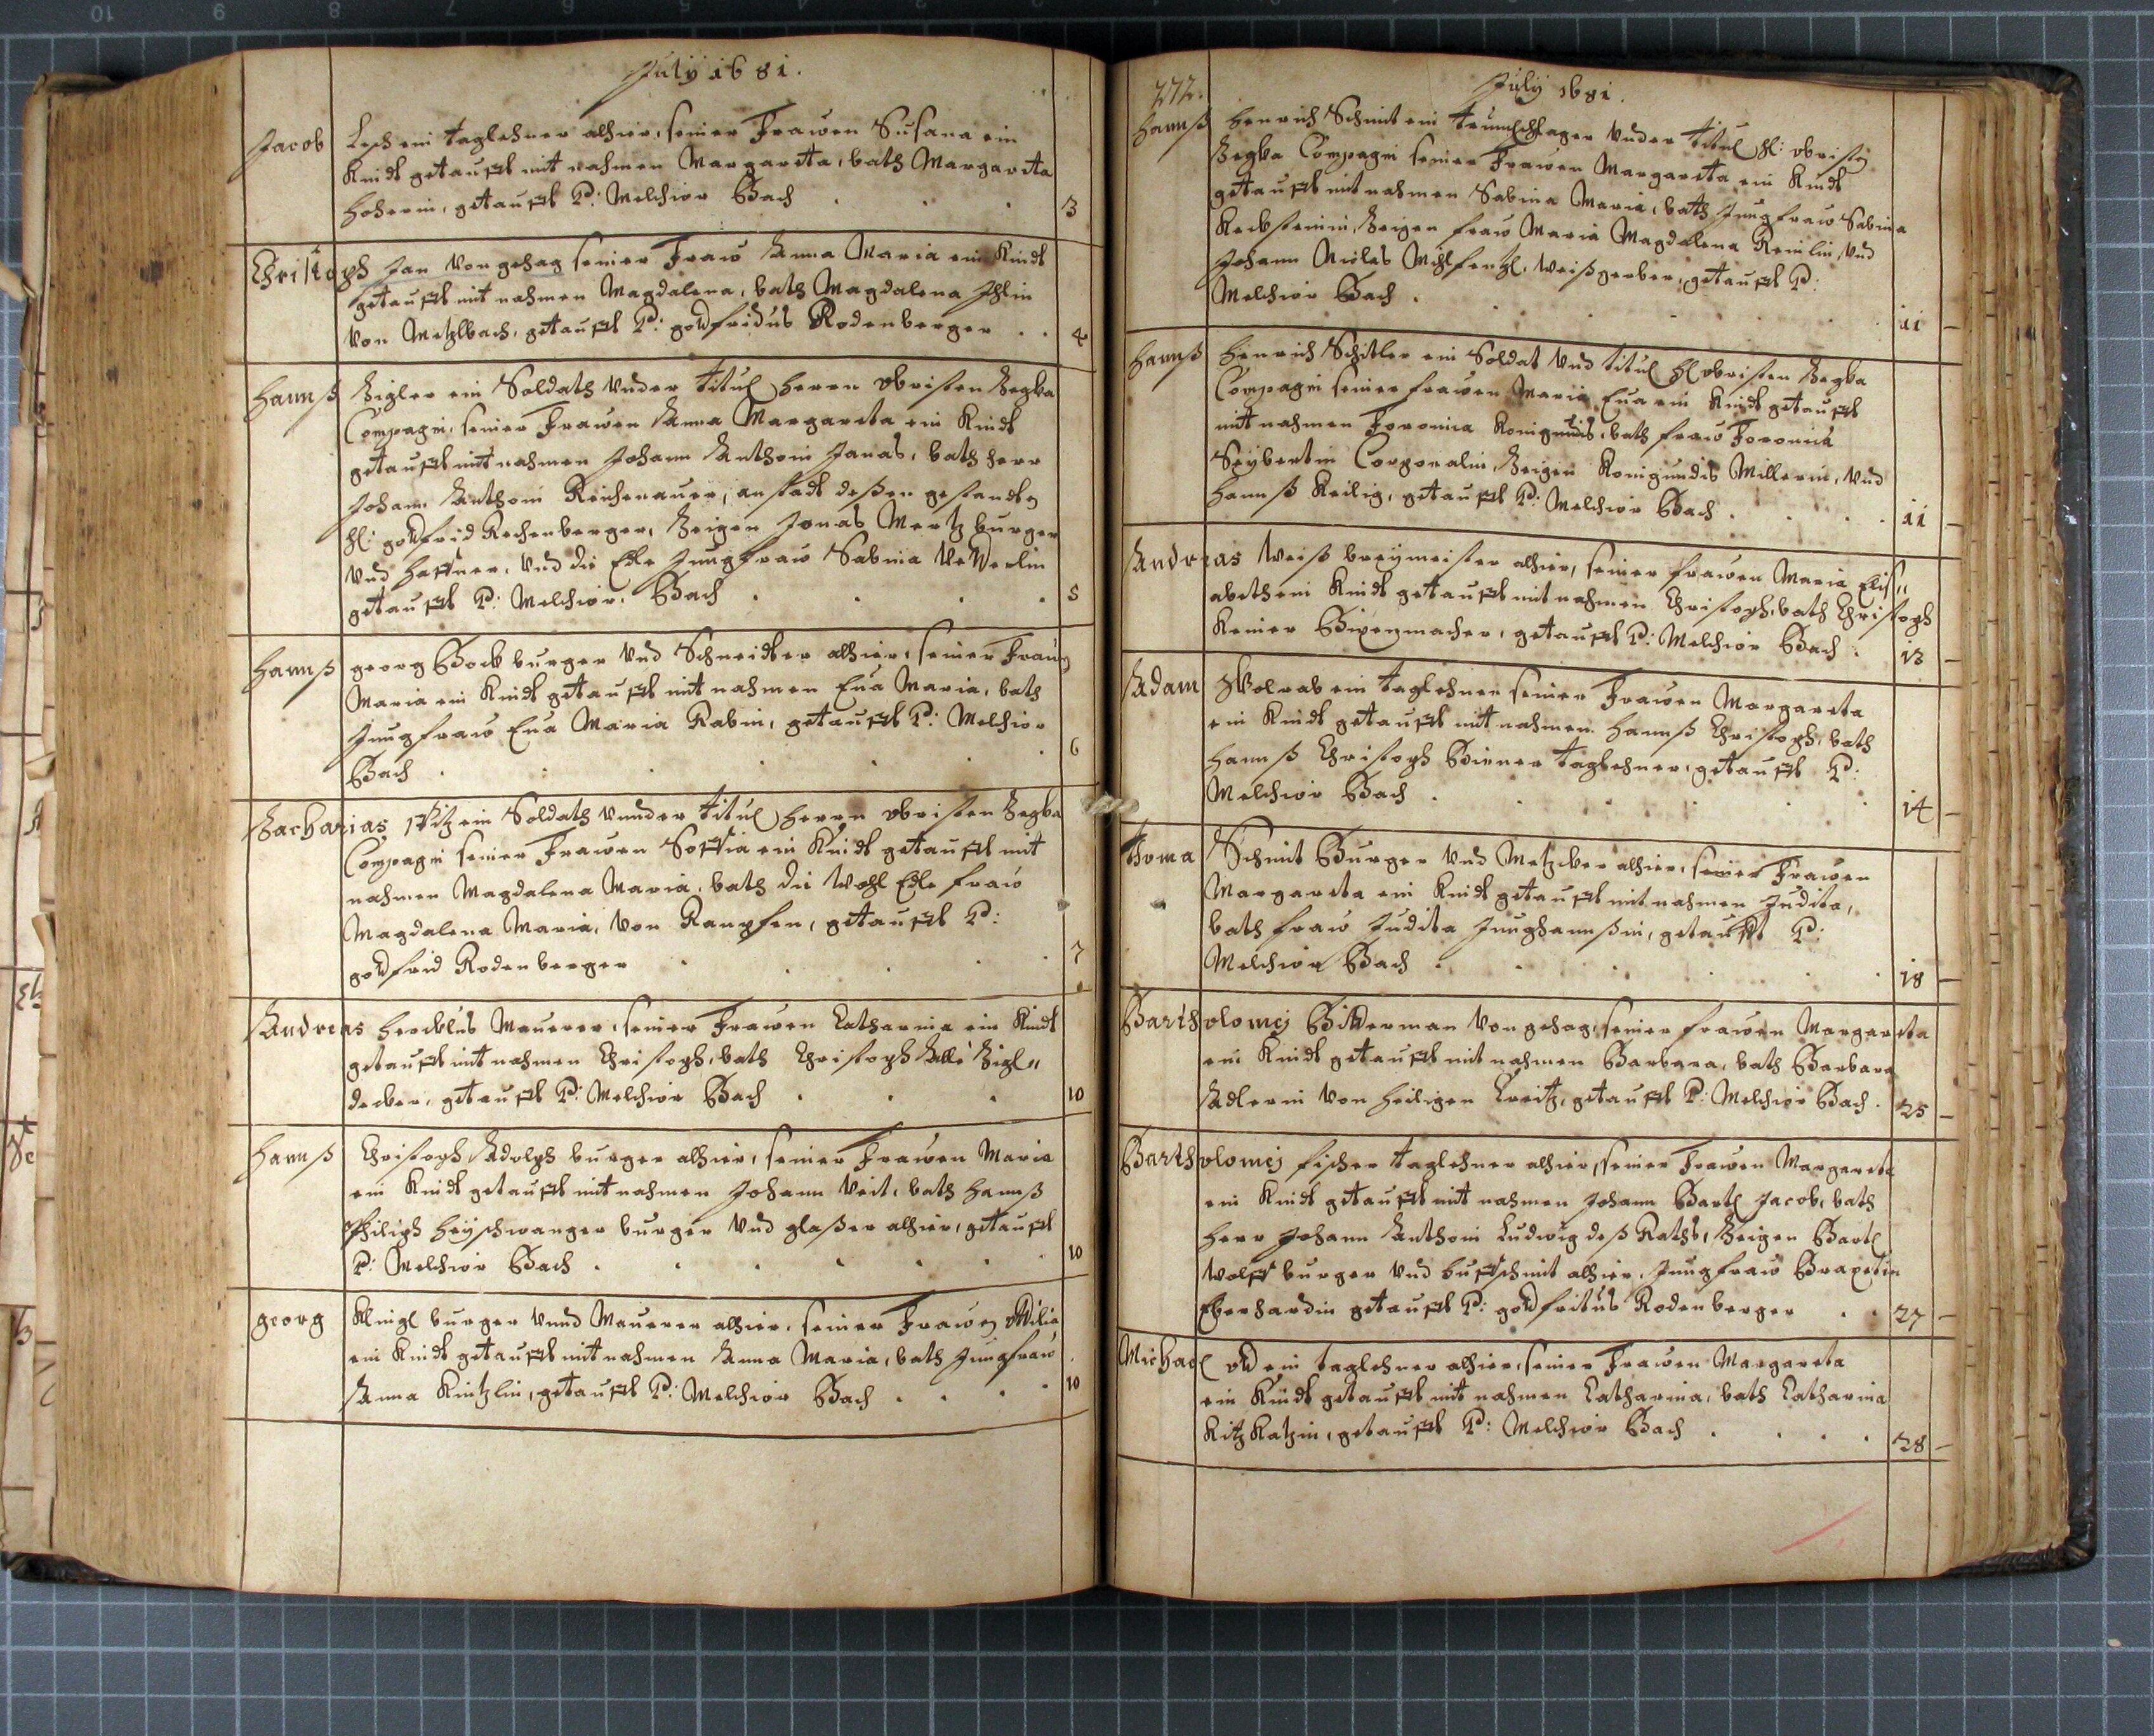 July 1681.
Jacob Lesch ein taglehner alhier, seiner Frawen Susana ein
Kindt getaufft mit nahmen Margareta, bath Margareta
hoherin, getaufft P: Melchior Bach . . . 3
Christoph Jan von gehag seiner Fraw Anna Maria ein Kindt
getaufft mit nahmen Magdalena, bath Magdalena
von Metzlbach, getaufft P: godfridus Rodenberger . . 4
hannß Zigler ein Soldath vnder Titul herrn obristen
Compagni, seiner Frawen Anna Margareta ein Kindt
getaufft mit nahmen Johann Anthoni Jonas, bath herr
Johann Anthoni Reichenauer, anstadt deßen gestandten
H: godfrid Rechenberger, Zeigen Jonas Mertz burger
vnd haffner, vnd die Edle Jungfraw Sabina
getaufft P: Melchior Bach . . . . 5
hannß georg Bock burger vnd Schneidter alhier, seiner Frawen
Maria ein Kindt getaufft mit nahmen Eua Maria, bath
Jungfraw Eua Maria Rabin, getaufft P: Melchior
Bach . . . . . . 6
Zacharias ein Soldath vnnder Titul herrn obristen
Compagni seiner Frawen Soffia ein Kindt getaufft mit
nahmen Magdalena Maria, bath die Wohl Edle fraw
Magdalena Maria, von Rampfen, getaufft P:
godfrid Rodenberger . . . . 7
Andreas Maurer, seiner Frawen Catharina ein Kindt
getaufft mit nahmen Christoph, bath Christoph Zigl"
decker, getaufft P: Melchior Bach . . . 10
hannß Christoph Adolph burger alhier, seiner Frawen Maria
ein Kindt getaufft mit nahmen Johann Veit, bath hannß
Philiph heyschwanger burger vnd glaßer alhier, getaufft
P: Melchior Bach . . . . . . 10
georg Klingl burger vnnd Maurer alhier, seiner Frawen Ottilia
ein Kindt getaufft mit nahmen Anna Maria, bath Jungfraw
Anna Kintzlin, getaufft P: Melchior Bach . . . . 10
272. July 1681.
hannß henrich Schmit ein Trumschlager vnder Titul H: obristen
Compagni seiner Frawen Margareta ein Kindt
getaufft mit nahmen Sabina Maria, bath Jungfraw Sabina
Zeigen fraw Maria Magdalena Remlin, vnd
Johann Niclas weißgerber, getaufft P:
Melchior Bach . . . . . . 11
hannß henrich Schitler ein Soldat vnd titul H obristen
Compagni seiner frawen Maria Eua ein Kindt getaufft
mit nahmen Foronica Konigundis, bath fraw Foronica
Seybertin Corporalin, Zeigen Konigundis Millerin, vnd
hannß Keilig, getaufft P: Melchior Bach . . . . 11
Andreas Weiß breymeister alhier, seiner frawen Maria Elis"
abeth ein Kindt getaufft mit nahmen Christoph, bath Christoph
Keiner Bixenmacher, getaufft P: Melchior Bach . 13
Adam Wolrab ein taglehner seiner Frawen Margareta
ein Kindt getaufft mit nahmen hannß Christoph, bath
hannß Christoph Birner taglehner, getaufft P:
Melchior Bach . . . . . . 14
Thoma Schmit Burger vnd Metzcker alhier, seiner Frawen
Margareta ein Kindt getaufft mit nahmen Judita,
bath fraw Judita Junghannßin, getaufft P:
Melchior Bach . . . . . . 18
Bartholomej Bitterman von gehag, seiner frawen Margareta
ein Kindt getaufft mit nahmen Barbara, bath Barbara
Adlerin von heiligen Creitz, getaufft P: Melchior Bach . 25
Bartholomej fischer taglehner alhier, seiner Frawen Margareta
ein Kindt getaufft mit nahmen Johann Bartl Jacob, bath
herr Johann Anthoni Ludwig deß Raths, Zeigen Bartl
Wolff burger vnd huffschmit alhier, Jungfraw Braxetin
Eberhardin getaufft P: godfritus Rodenberger . . 27
Michael ott ein taglehner alhier, seiner Frawen Margareta
ein Kindt getaufft mit nahmen Catharina, bath Catharina
Kitzkatzin, getaufft P: Melchior Bach . . . . 28